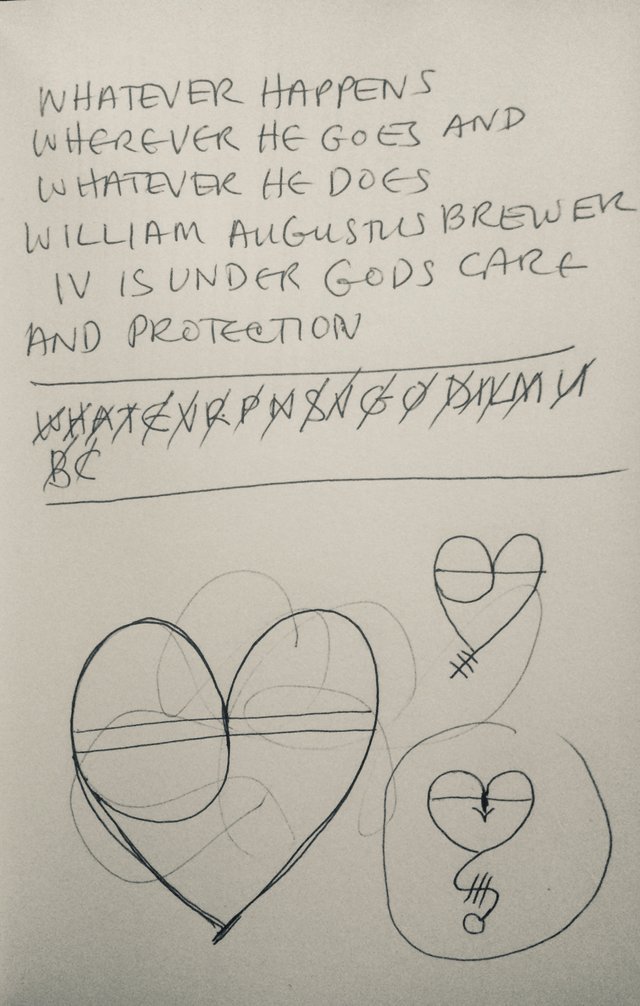 WHATEVER HAPPENS
WHEREVER HE GOES AND
WHATEVER HE DOES
WILLIAM AUGUSTUS BREWER
IV IS UNDER GODS CARE
AND PROTECTION
WHATEVRPNSNGODILMU
BC